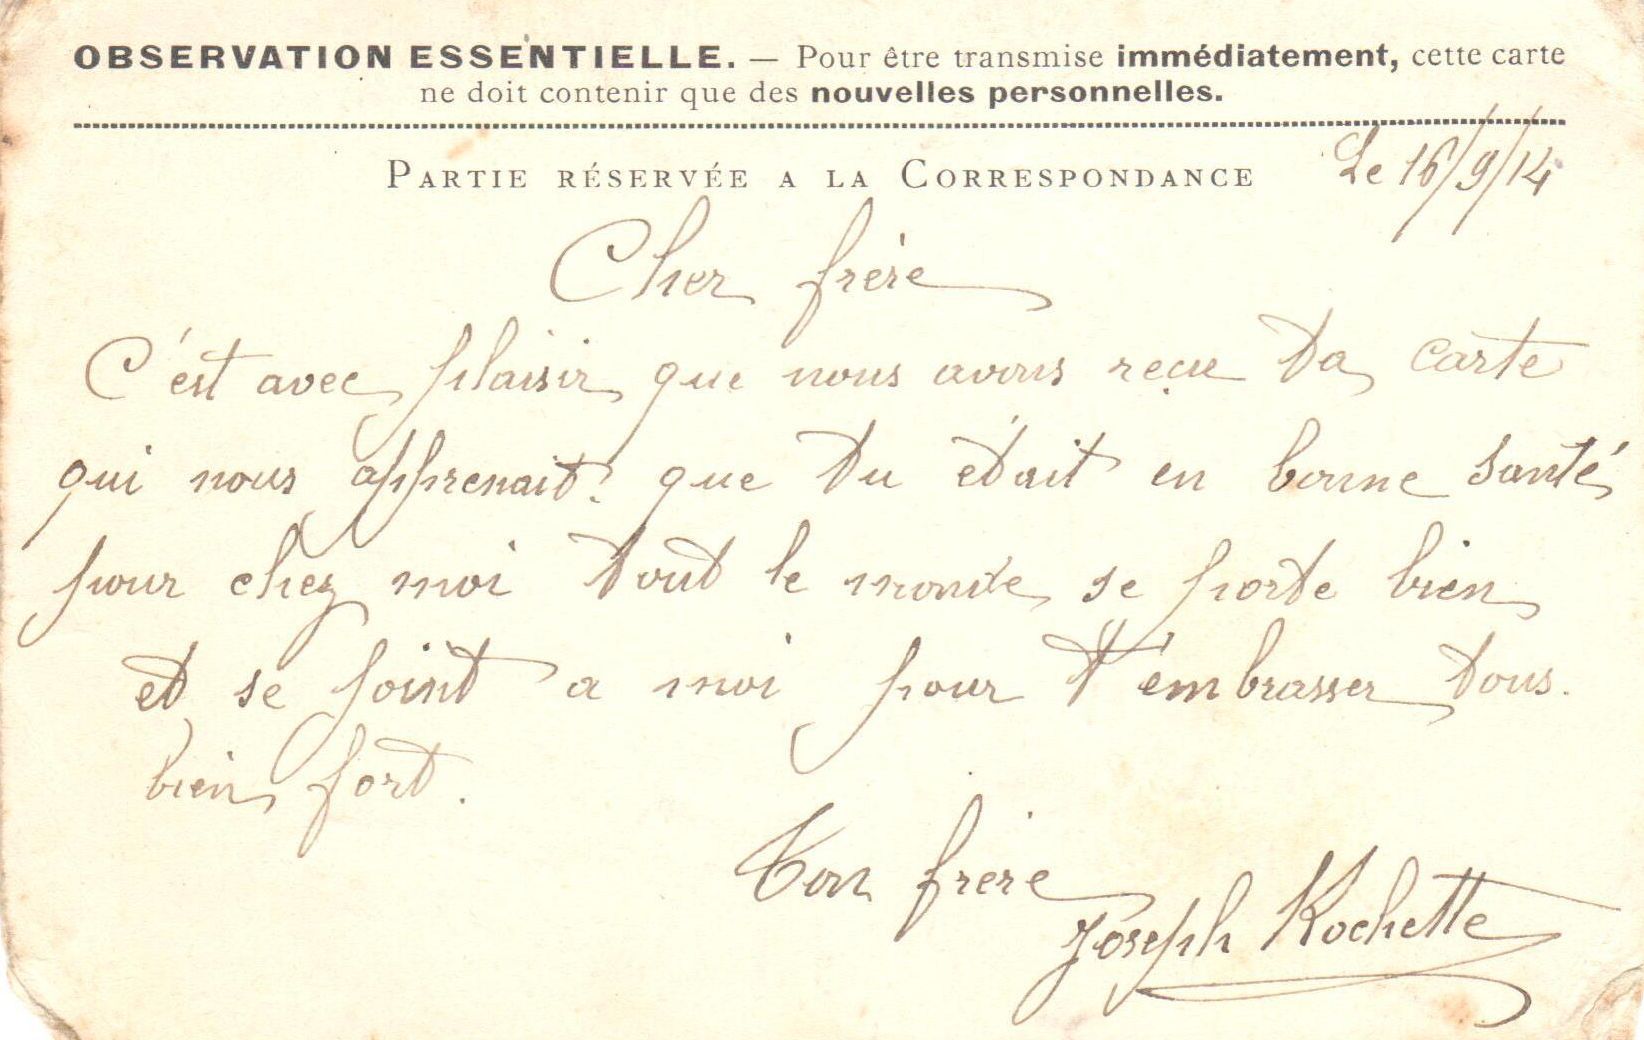 OBSERVATION ESSENTIELLE. — Pour être transmise immédiatement, cette carte
ne doit contenir que des nouvelles personnelles.
Le 16/9/14
PARTIE RÉSERVÉE A LA CORRESPONDANCE
Cher frère
C'est avec plaisir que nous avons reçue ta carte
qui nous apprenait que tu était en bonne santé
pour chez moi tout le monde se porte bien
et se joint a moi pour t'embrasser tous
bien fort.
Ton frère
Joseph Rochette